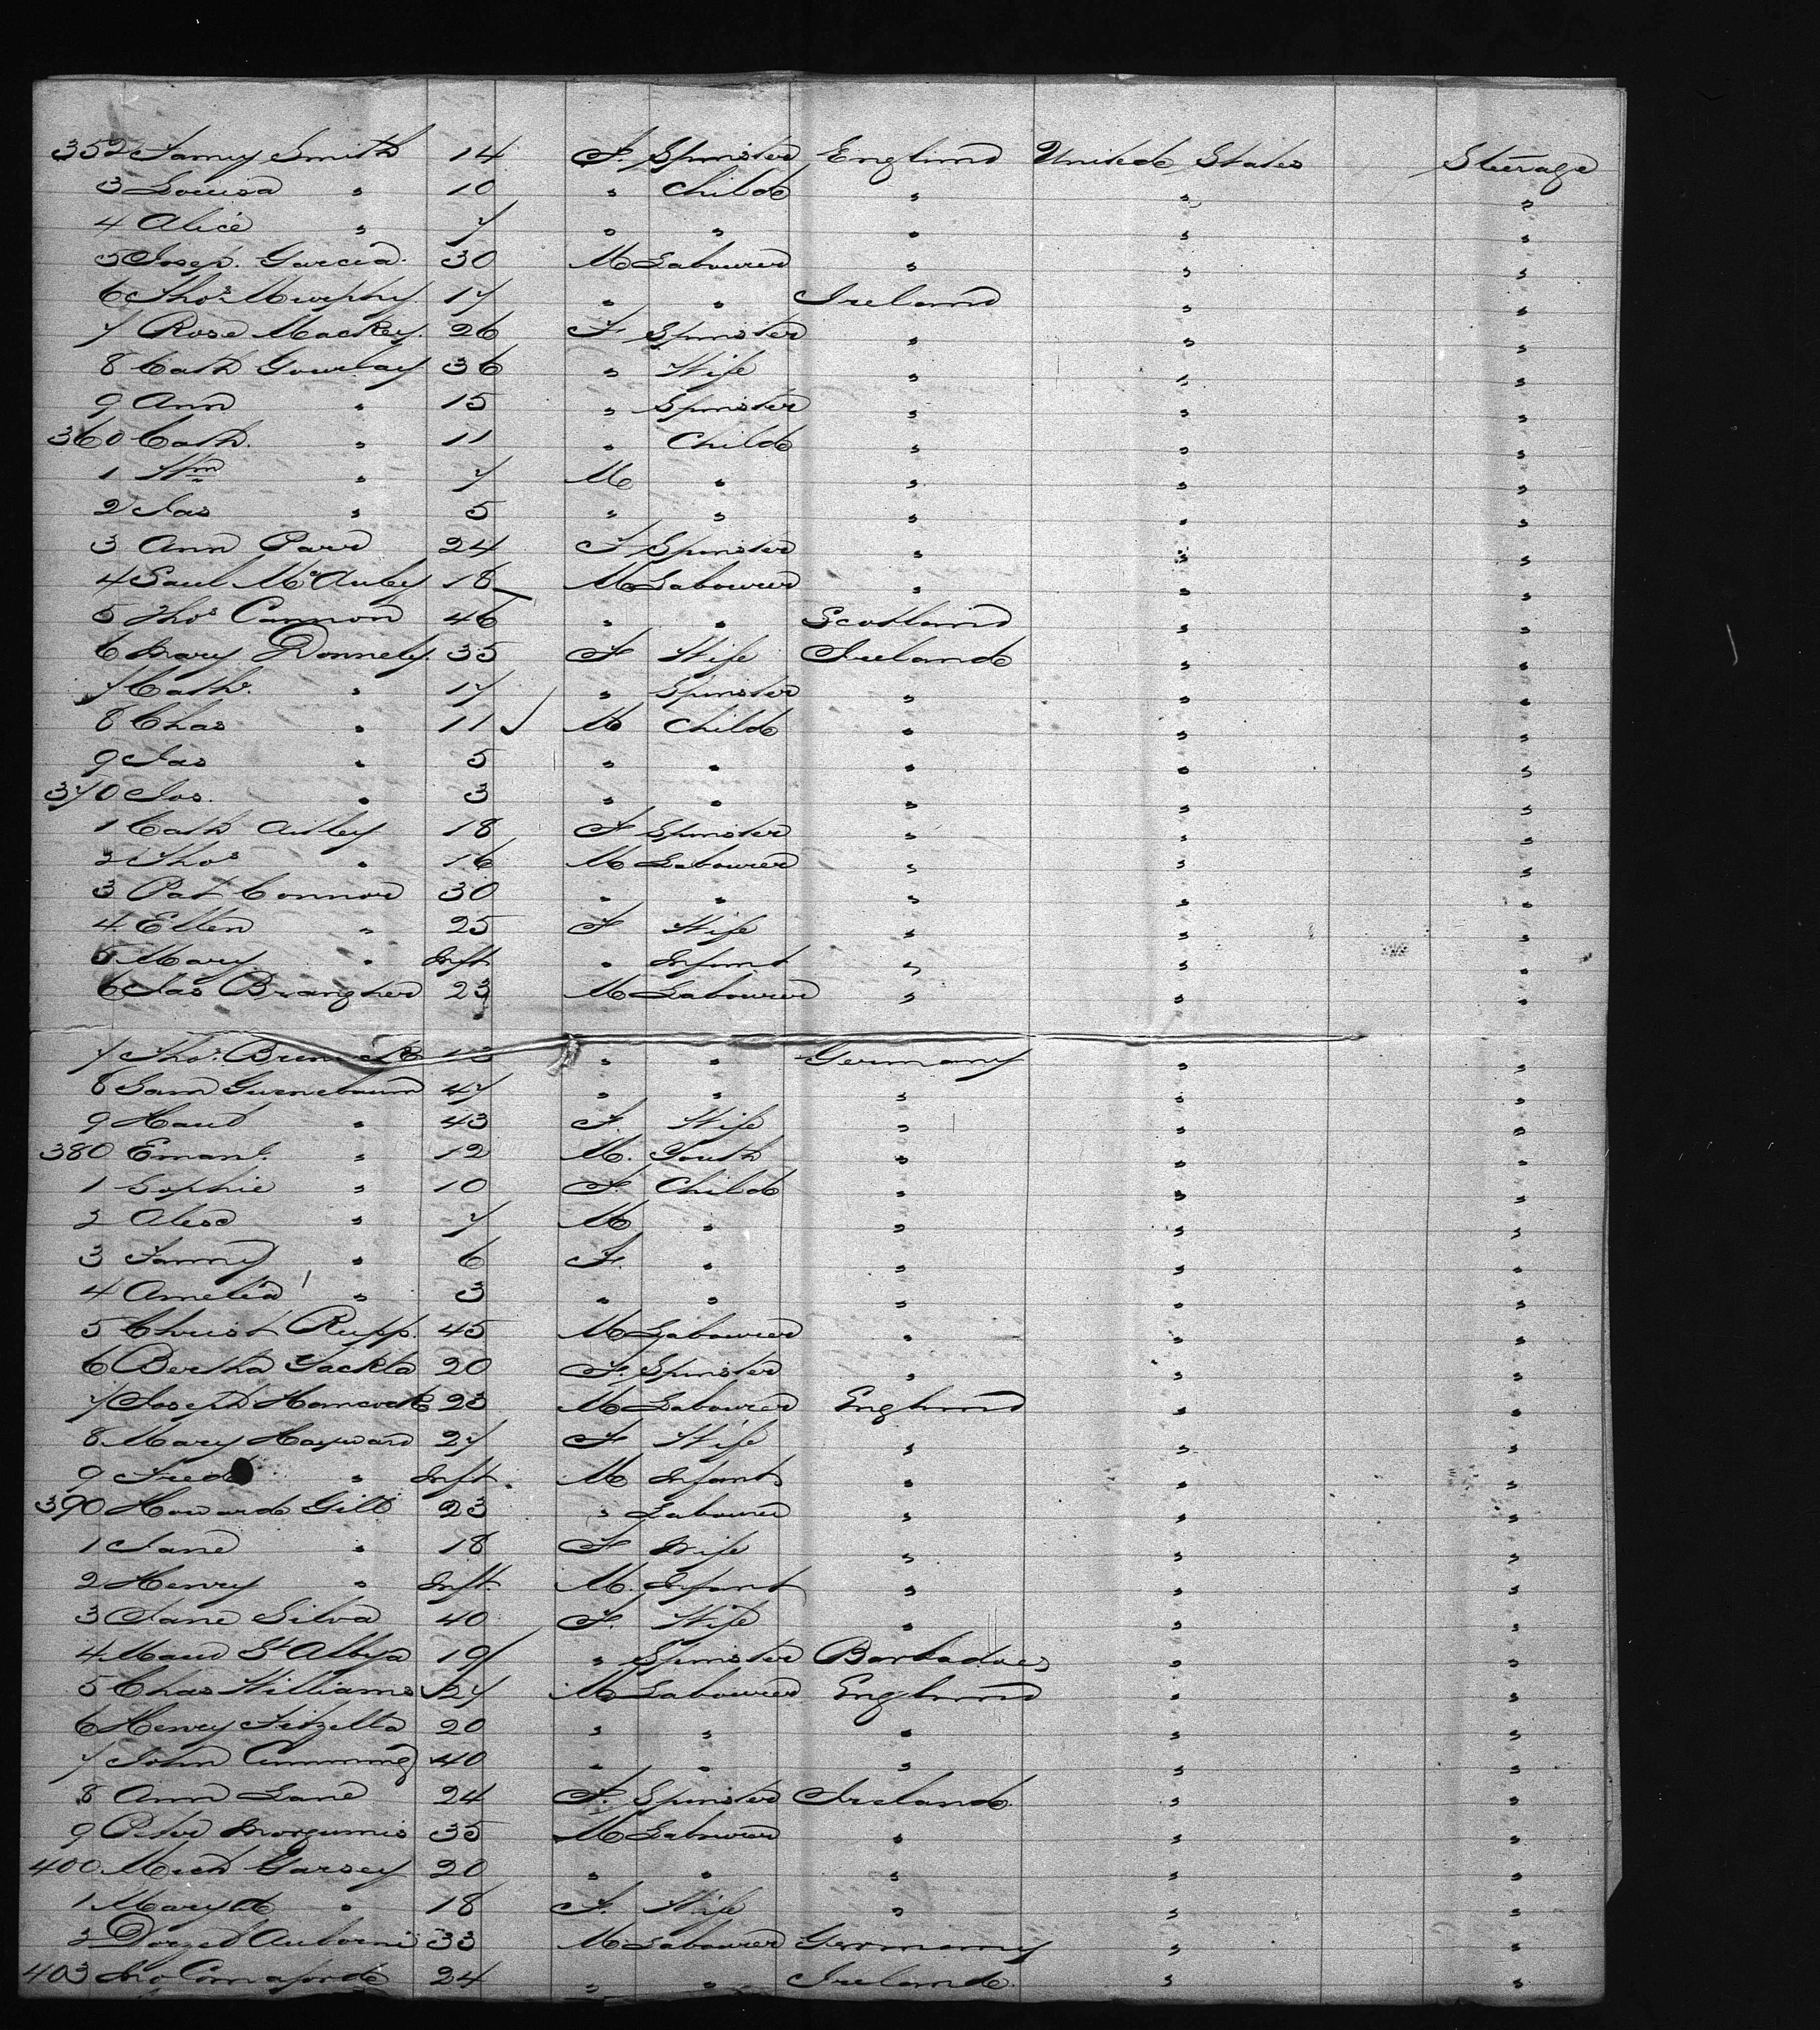 352 Fanny Smith 14 F. Spinster England United States Steerage
3 Louisa " 10 " Child " " "
4 Alice " 7 " " " " "
5 Josep. Garcia. 30 M Labourer " " "
6 Thos Murphy 17 " " Ireland " "
7 Rose Mackey. 26 F Spinster " " "
8 Cath Gourlay 36 " Wife " " "
9 Ann " 15 " Spinster " " "
360 Cath. " 11 " Child " " "
1 Wm " 7 M " " " "
2 Jas " 5 " " " " "
3 Ann Parr 24 F Spinster " " "
4 Saul McAuley 18 M Labourer " " "
5 Thos Cannon 46 " " Scotland " "
6 Mary Donnely. 35 F Wife Ireland " "
7 Cath. " 17 " Spinster " " "
8 Chas " 11 M Child " " "
9 Jas " 5 " " " " "
370 Jos. " 3 " " " " "
1 Cath 18 F Spinster " " "
2 Thos " 16 M Labourer " " "
3 Pat Connor 30 " " " " "
4 Ellen " 25 F Wife " " "
5 Mary " Inft " Infant " " "
6 Jas 23 M Labourer " " "
7 Thos " " Germany " "
8 Sam 47 " " " " "
9 " 43 F. Wife " " "
380 Emanl. " 12 M. Youth " " "
1 Sophie " 10 F. Child " " "
2 " 7 M " " " "
3 Fanny " 6 F. " " " "
4 Amelia " 3 " " " " "
5 Christ Rupp. 45 M Labourer " " "
6 Bertha 20 F. Spinster " " "
7 Joseph Hancock 23 M Labourer England " "
8 Mary Hayward 27 F Wife " " "
9 Fred " Inft. M Infant " " "
390 Howard Gill 23 " Labourer " " "
1 Jane " 18 F Wife " " "
2 Henry " Inft M. Infant " " "
3 Jane Silva 40 F. Wife " " "
4 Maud St 19 " Spinster Barbadoes " "
5 Chas Williams 27 M Labourer England " "
6 Henry 20 " " " " "
7 John Cumming 40 " " " " "
8 Ann Lane 24 F. Spinster Ireland. " "
9 Peter 35 M Labourer " " "
400 Mich Garsey 20 " " " " "
1 Mary " 18 F. Wife " " "
2 33 M Labourer Germany " "
403 Jno 24 " " Ireland. " "